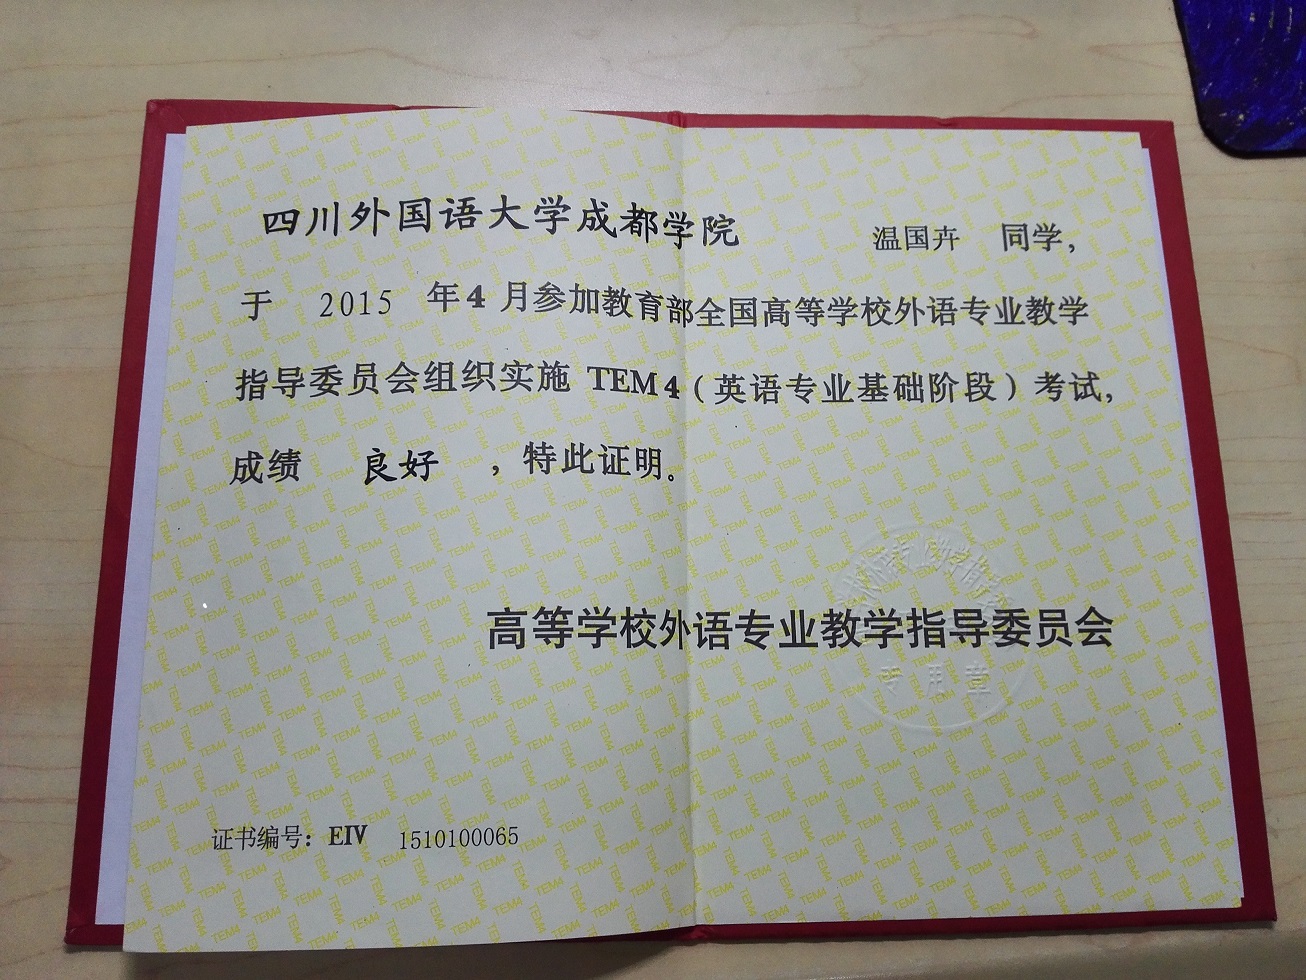 四川外国语大学成都学院 温国卉 同学，
于 2015 年4 月参加教育部全国高等学校外语专业教学
指导委员会组织实施 TEM4（英语专业基础阶段）考试，
成绩 良好 ，特此证明。
高等学校外语专业教学指导委员会
专用章
证书编号：EIV 1510100065